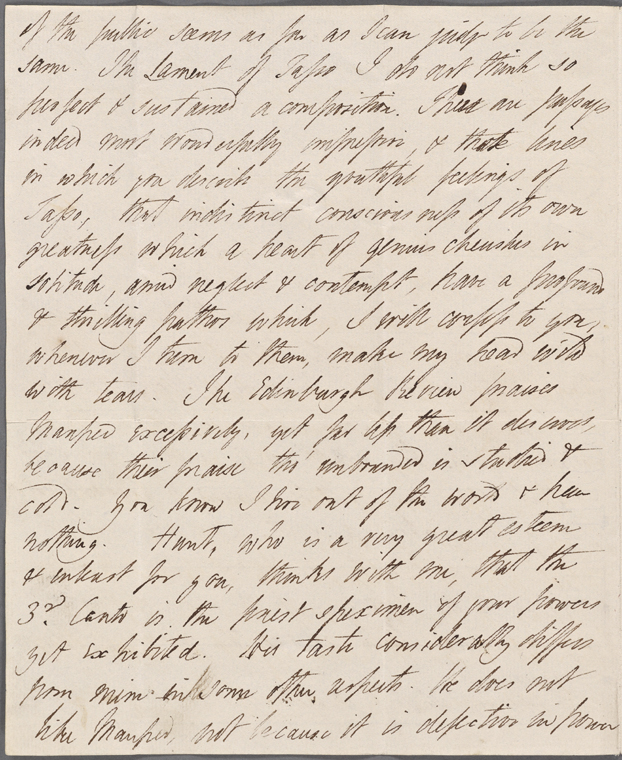 of the public seems as far as I can judge to be the
same. The Lament of Tasso I do not think so
perfect & sustained a composition. There are passages
indeed most wonderfully impressive, & those lines
in which you describe the youthful feelings of
Tasso, that indistinct consciousness of its own
greatness which a heart of genius cherishes in
solitude, amid neglect & contempt, have a profound
& thrilling pathos which, I will confess to you,
whenever I turn to them, make my head wild
with tears. The Edinburgh Review praises
Manfred excessively, yet far less than it deserves,
because their praise tho' unbounded is studied &
cold. You know I live out of the world & hear
nothing. Hunt, who is a very great esteem
& interest for you, thinks with me, that the
3rd. Canto is the finest specimen of your powers
yet exhibited. His taste considerably differs
from mine in some other aspects. He does not
like Manfred, not because it is defective in power